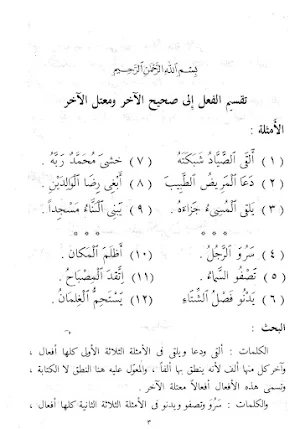 بِسْمِ ٱللَّهِ ٱلرَّحْمَٰنِ ٱلرَّحِيمِ
تقسيم الفعل إلى صحيح الآخر ومعتل الآخر
الأمثلة :
(١) أَلْقَى الصَّيَّادُ شَبَكَتَهُ (٧) خَشِيَ مُحَمَّدٌ رَبَّهُ .
(٢) دَعَا الْمَرِيضُ الطَّبِيبَ (٨) أَبْغِي رِضَا الْوَالِدَيْنِ .
(٣) يَلْقَى الْمُسِيءُ جَزَاءَهُ . (٩) يَبْنِي الْبَنَّاءُ مَسْجِداً .
* * * * * *
(٤) سَرُوَ الرَّجُلُ . (١٠) أَظْلَمَ الْمَكَانُ .
(٥) تَصْفُو السَّمَاءُ . (١١) اتَّقَدَ الْمِصْبَاحُ .
(٦) يَدْنُو فَصْلُ الشِّتَاءِ (١٢) يَسْتَحِمُّ الْغِلْمَانُ .
البحث :
الكلمات : ألقى ودعا ويلقى فى الأمثلة الثلاثة الأولى كلها أفعال ،
وآخر كل منها ألف لأنه ينطق بها ألفاً ، والمعوّل عليه هنا النطق لا الكتابة ،
وتسمى هذه الأفعال أفعالاً معتلة الآخر .
والكلمات : سَرُوَ وتصفو ويدنو فى الأمثلة الثلاثة الثانية كلها أفعال ،
٣